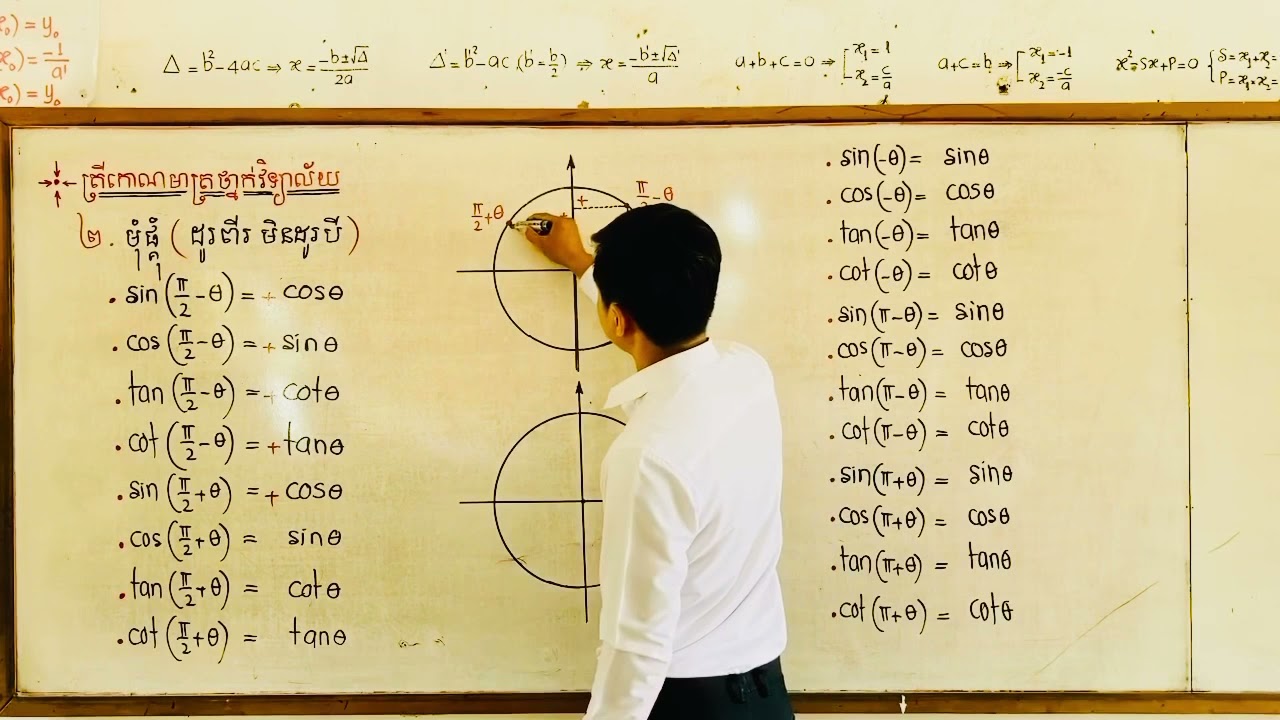 x₀) = y₀
x₀) = -1/a'
x₀) = y₀
Δ = b² - 4ac ⇒ x = (-b±√Δ)/2a
Δ' = b'² - ac (b' = b/2) ⇒ x = (-b'±√Δ')/a
a+b+c=0 ⇒ [x₁=1
x₂=c/a
a+c=b ⇒ [x₁=-1
x₂=-c/a
x²-Sx+P=0 {S=x₁+x₂=
P=x₁×x₂=
ត្រីកោណមាត្រថ្នាក់វិទ្យាល័យ
២. មុំផ្គុំ (ដូរពីរ មិនដូរបី)
. sin(π/2 - θ) = + cosθ
. cos(π/2 - θ) = + sinθ
. tan(π/2 - θ) = + cotθ
. cot(π/2 - θ) = + tanθ
. sin(π/2 + θ) = + cosθ
. cos(π/2 + θ) = sinθ
. tan(π/2 + θ) = cotθ
. cot(π/2 + θ) = tanθ
π/2 + θ
π/2 - θ
+
+
. sin(-θ) = sinθ
. cos(-θ) = cosθ
. tan(-θ) = tanθ
. cot(-θ) = cotθ
. sin(π-θ) = sinθ
. cos(π-θ) = cosθ
. tan(π-θ) = tanθ
. cot(π-θ) = cotθ
. sin(π+θ) = sinθ
. cos(π+θ) = cosθ
. tan(π+θ) = tanθ
. cot(π+θ) = cotθ